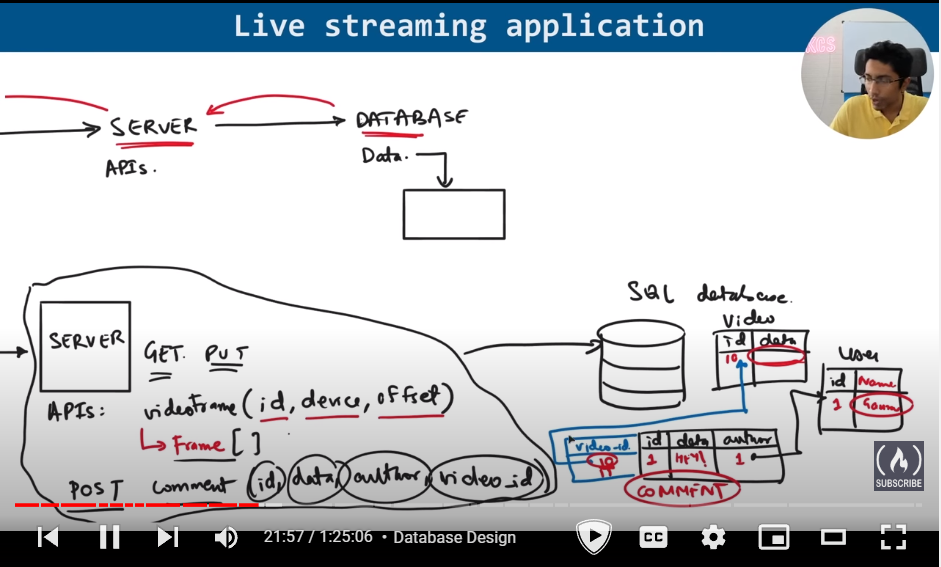 Live streaming application
ACS
SERVER
APIs.
DATABASE
Data.
SERVER
GET PUT
APIs:
videoFrame (id, device, offset)
Frame []
POST comment (id, data, author, video_id)
SQL database.
Video
id data
10
User
id Name
1
video_id id data author
10 1 HEY! 1
COMMENT
SUBSCRIBE
21:57 / 1:25:06 • Database Design
CC